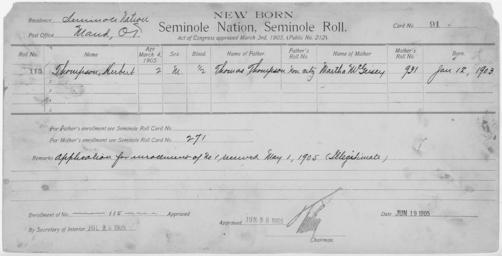 NEW BORN.
Residence Seminole Nation
Seminole Nation, Seminole Roll.
Card No. 91
Post Office Maud, O.T.
Act of Congress approved March 3rd, 1905, (Public No. 212).
Roll No. Name Age March 4, 1905 Sex Blood Name of Father Father's Roll No. Name of Mother Mother's Roll No. Born.
115 Thompson, Herbert 2 M. 1/2 Thomas Thompson Non city Martha McGeisey 931 Jan 12, 1903
2
3
4
5
For Father's enrollment see Seminole Roll Card No.
For Mother's enrollment see Seminole Roll Card No. 271
Remarks Application for enrollment of No 1 received May 1, 1905 (Illegitimate)
Enrollment of No. 115 Approved
Approved
Date JUN 19 1905
By Secretary of Interior
Chairman.